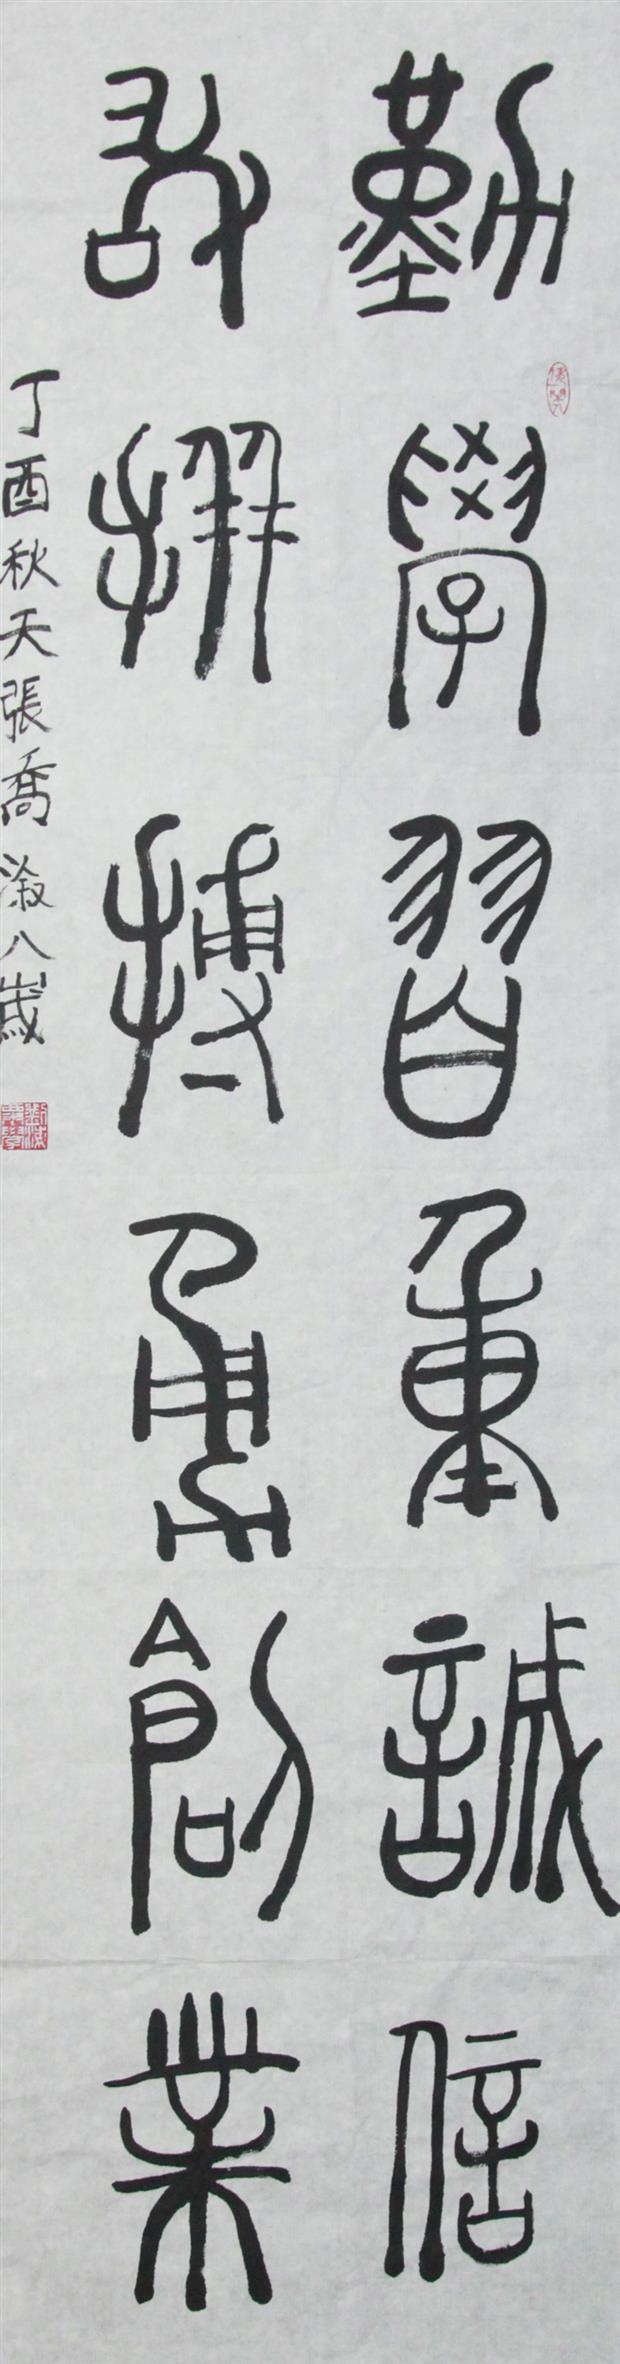 勤學習重誠信
敢拼搏勇創業
丁酉秋天張喬溆八歲